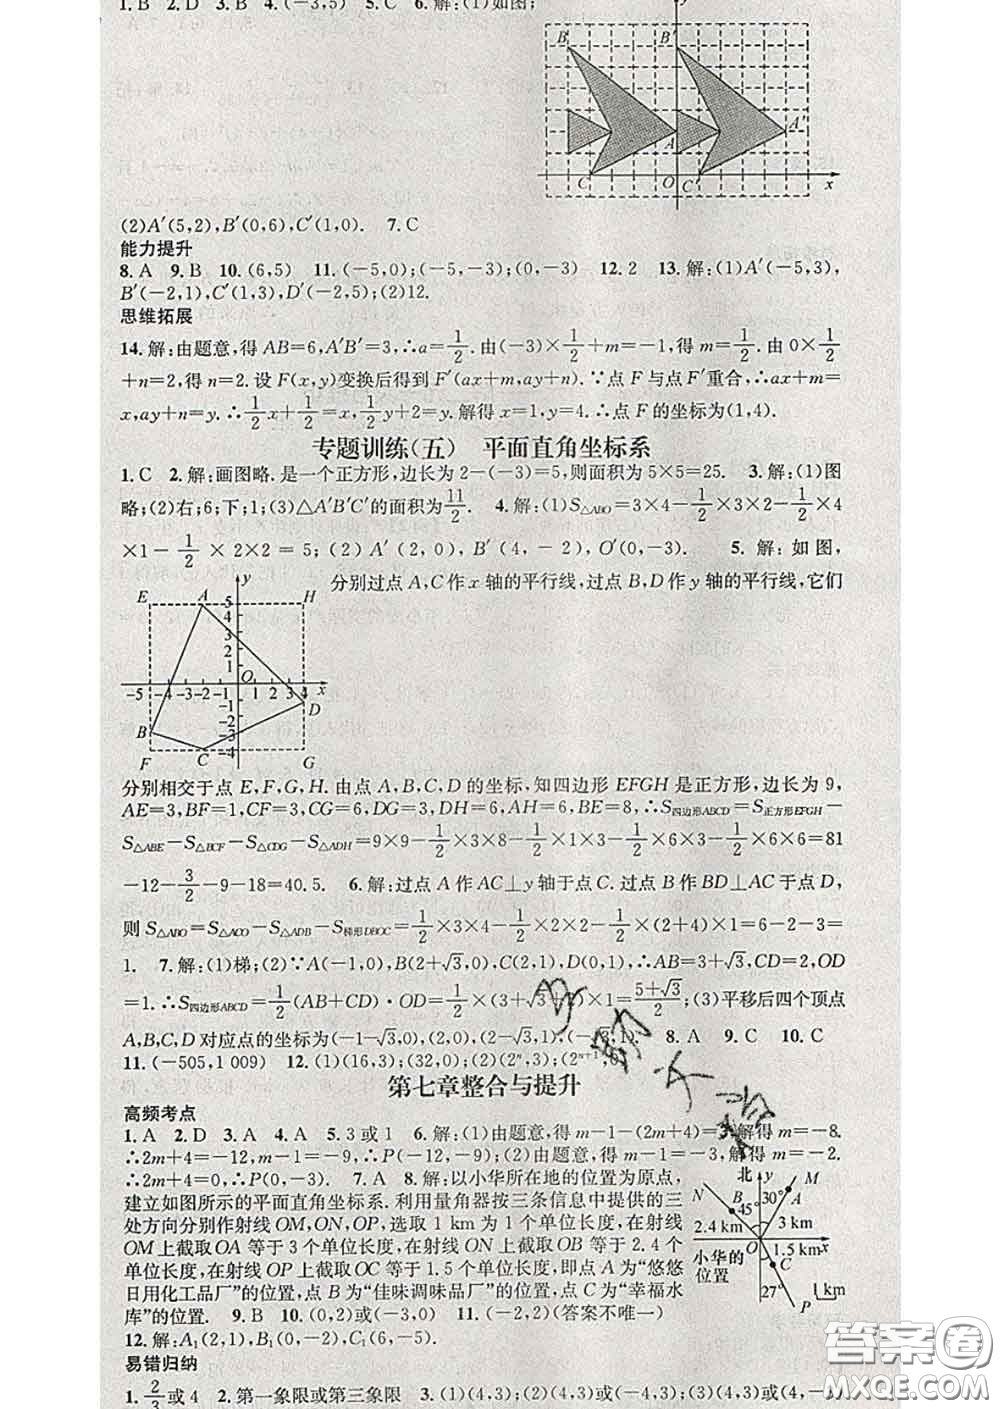 1. B 2. D 3. B 4. (-3,5) 5. C 6. 解:(1)如图;
y
B₁ B′
A A′
C O C′ x
(2)A′(5,2),B′(0,6),C′(1,0). 7. C
能力提升
8. A 9. B 10. (6,5) 11. (-5,0);(-5,-3);(0,-3) 12. 2 13. 解:(1)A′(-5,3),
B′(-2,1),C′(1,3),D′(-2,5);(2)12.
思维拓展
14. 解:由题意,得 AB=6,A′B′=3,∴a=1/2. 由(-3)×1/2+m=-1,得 m=1/2. 由 0×1/2
+n=2,得 n=2. 设 F(x,y)变换后得到 F′(ax+m,ay+n). ∵点 F 与点 F′重合,∴ax+m=
x,ay+n=y. ∴1/2x+1/2=x,1/2y+2=y. 解得 x=1,y=4. ∴点 F 的坐标为(1,4).
专题训练(五) 平面直角坐标系
1. C 2. 解:画图略. 是一个正方形,边长为 2-(-3)=5,则面积为 5×5=25. 3. 解:(1)图
略;(2)右;6;下;1;(3)△A′B′C′的面积为11/2. 4. 解:(1)S△ABO=3×4-1/2×3×2-1/2×4
×1-1/2×2×2=5;(2)A′(2,0),B′(4,-2),O′(0,-3). 5. 解:如图,
分别过点 A,C 作 x 轴的平行线,过点 B,D 作 y 轴的平行线,它们
E A 5 y H
4
3
2
1
O
-5 -4 -3 -2 -1 1 2 3 4 x
-1
-2 D
B -3
F C -4 G
分别相交于点 E,F,G,H. 由点 A,B,C,D 的坐标,知四边形 EFGH 是正方形,边长为 9,
AE=3,BF=1,CF=3,CG=6,DG=3,DH=6,AH=6,BE=8,∴S四边形ABCD=S正方形EFGH-
S△ABE-S△BCF-S△CDG-S△ADH=9×9-1/2×3×8-1/2×1×3-1/2×6×3-1/2×6×6=81
-12-3/2-9-18=40.5. 6. 解:过点 A 作 AC⊥y 轴于点 C. 过点 B 作 BD⊥AC 于点 D,
则 S△ABO=S△ACO-S△ADB-S梯形DBOC=1/2×3×4-1/2×2×2-1/2×(2+4)×1=6-2-3=
1. 7. 解:(1)梯;(2)∵A(-1,0),B(2+√3,0),C(2,1),D(0,1),∴AB=3+√3,CD=2,OD
=1. ∴S四边形ABCD=1/2(AB+CD)·OD=1/2×(3+√3+2)×1=(5+√3)/2;(3)平移后四个顶点
A,B,C,D 对应点的坐标为(-1-√3,0),(2,0),(2-√3,1),(-√3,1). 8. A 9. C 10. C
11. (-505,1 009) 12. (1)(16,3);(32,0);(2)(2ⁿ,3);(2ⁿ⁺¹,0)
第七章整合与提升
高频考点
1. A 2. D 3. A 4. A 5. 3 或 1 6. 解:(1)由题意,得 m-1-(2m+4)=3,解得 m=-8.
∴2m+4=-12,m-1=-9,∴P(-12,-9);(2)由题意,得 m-1=-3,解得 m=-2.
∴2m+4=0,∴P(0,-3). 7. A 8. 解:以小华所在地的位置为原点,
建立如图所示的平面直角坐标系. 利用量角器按三条信息中提供的三
处方向分别作射线 OM,ON,OP,选取 1 km 为 1 个单位长度,在射线
OM 上截取 OA 等于 3 个单位长度,在射线 ON 上截取 OB 等于 2.4 个
单位长度,在射线 OP 上截取 OC 等于 1.5 个单位长度,即点 A 为“悠悠
日用化工品厂”的位置,点 B 为“佳味调味品厂”的位置,点 C 为“幸福水
库”的位置. 9. B 10. (0,2)或(-3,0) 11. (-2,2)(答案不唯一)
北 y M
N B 45° 30° A
2.4 km 3 km
O 1.5 km x
小华的
位置 C
27° 1 km
P
12. 解:A₁(2,1),B₁(0,-2),C₁(6,-5).
易错归纳
1. 2/3或 4 2. 第一象限或第三象限 3. (1)(4,3);(2)(4,3)或(4,-3)
答案圈
MXQE.COM